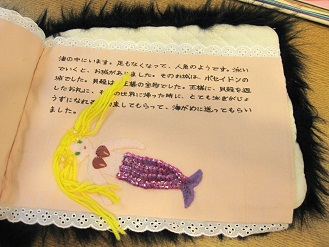 海の中にいます。足もなくなって、人魚のようです。泳い
でいくと、お城がありました。そのお城は、ポセイドンの
城でした。貝殻は、王様の宝物でした。王様に、貝殻を返
したお礼に、の世界に帰った時に、とても泳ぎがじょ
うずになれるしてもらって、海がめに送ってもらい
ました。